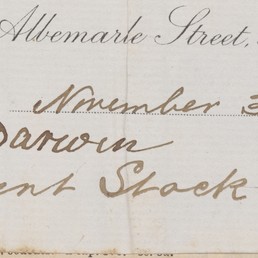 Albemarle Street,
November 3
Darwin
ent Stock